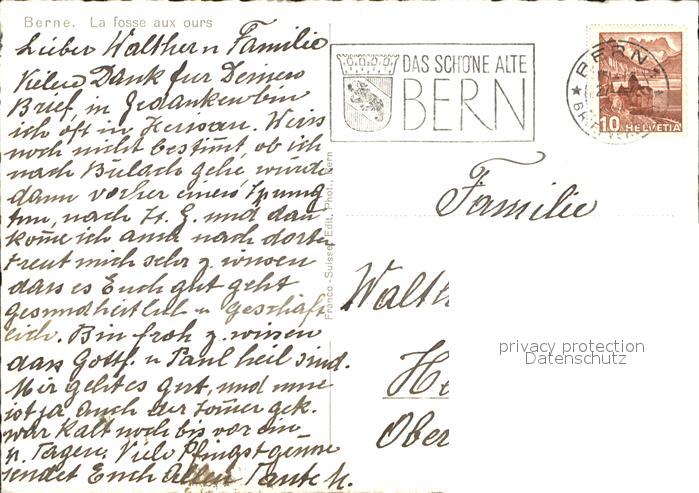 Berne. La fosse aux ours
Lieber Walther u Familie
Vielen Dank für Deinen
Brief, in Gedanken bin
ich oft in Herisau. Weiss
noch nicht bestimt, ob ich
nach Bülach gehe, würde
dann vorher einen Sprung
tun, nach St. G. und dan
kome ich auch nach dort
freut mich sehr z. wissen
dass es Euch gut geht
gesundheitlich u geschäft
lich. Bin froh z. wissen
dass Gottf. u Paul heil sind.
Mir geht es gut, und nun
ist ja auch der Somer gek.
war kalt noch bis vor ein
n. Tagen. Viele Pfingstgrüsse
sendet Euch Allen Tante M.
Franco-Suisse, Edit. Phot., Bern
DAS SCHÖNE ALTE
BERN
BERN
10 HELVETIA
Familie
Walth
privacy protection
Datenschutz
He
Ober